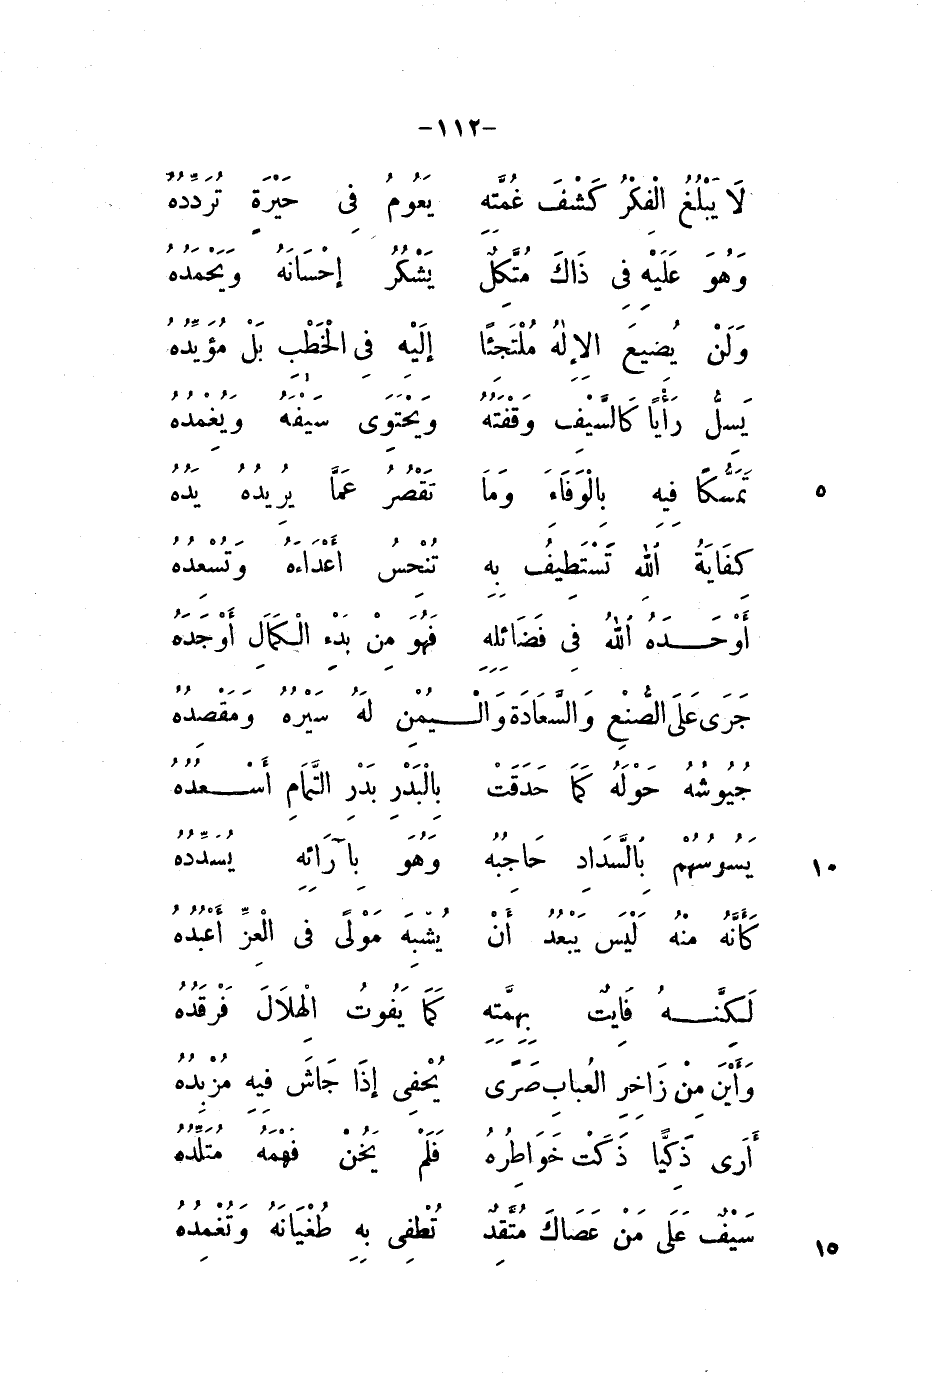 -١١٢-
لَا يَبْلُغُ الْفِكْرُ كَشْفَ غُمَّتِهِ يَعُومُ فِى حَيْرَةٍ تُرَدِّدُهُ
وَهُوَ عَلَيْهِ فِى ذَاكَ مُتَّكِلٌ يَشْكُرُ إِحْسَانَهُ وَيَحْمَدُهُ
وَلَنْ يُضِيعَ الإِلٰهُ مُلْتَجِئًا إِلَيْهِ فِى الْخَطْبِ بَلْ مُؤَيِّدُهُ
يَسِلُّ رَأْيًا كَالسَّيْفِ وَقْفَتُهُ وَيَحْتَوِى سَيْفَهُ وَيُغْمِدُهُ
تَمَسُّكًا فِيهِ بِالْوَفَاءِ وَمَا تَقْصُرُ عَمَّا يُرِيدُهُ يَدُهُ ٥
كِفَايَةُ اللهِ تَسْتَطِيفُ بِهِ تُنْحِسُ أَعْدَاءَهُ وَتُسْعِدُهُ
أَوْحَـــدَهُ اللهُ فِى فَضَائِلِهِ فَهُوَ مِنْ بَدْءِ الْكَمَالِ أَوْجَدَهُ
جَرَى عَلَى الصُّنْعِ وَالسَّعَادَةِ وَالْـــيُمْنِ لَهُ سَيْرُهُ وَمَقْصِدُهُ
جُيُوشُهُ حَوْلَهُ كَمَا حَدَقَتْ بِالْبَدْرِ بَدْرِ التَّمَامِ أَسْـــعُدُهُ
يَسُوسُهُمْ بِالسَّدَادِ حَاجِبُهُ وَهُوَ بِآرَائِهِ يُسَدِّدُهُ ١٠
كَأَنَّهُ مِنْهُ لَيْسَ يَبْعُدُ أَنْ يُشْبِهَ مَوْلًى فِى الْعِزِّ أَعْبُدُهُ
لَـكِنَّـــهُ فَايِتٌ بِهِمَّتِهِ كَمَا يَفُوتُ الْهِلَالَ فَرْقَدُهُ
وَأَيْنَ مِنْ زَاخِرِ العُبابِ صَرًى يُحْفِى إِذَا جَاشَ فِيهِ مُزْبِدُهُ
أَرَى ذَكِيًّا ذَكَتْ خَوَاطِرُهُ فَلَمْ يَخُنْ فَهْمَهُ مُتَلَّدُهُ
سَيْفٌ عَلَى مَنْ عَصَاكَ مُتَّقِدٌ تُطْفِى بِهِ طُغْيَانَهُ وَتُغْمِدُهُ ١٥